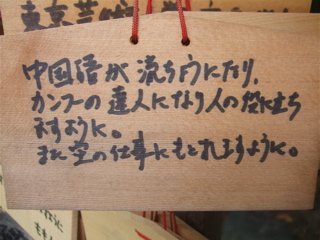 東京芸術
中国語が流ちょうになり、
カンフーの達人になり人の役に立ち
ますように。
また空の仕事にもどれますように。